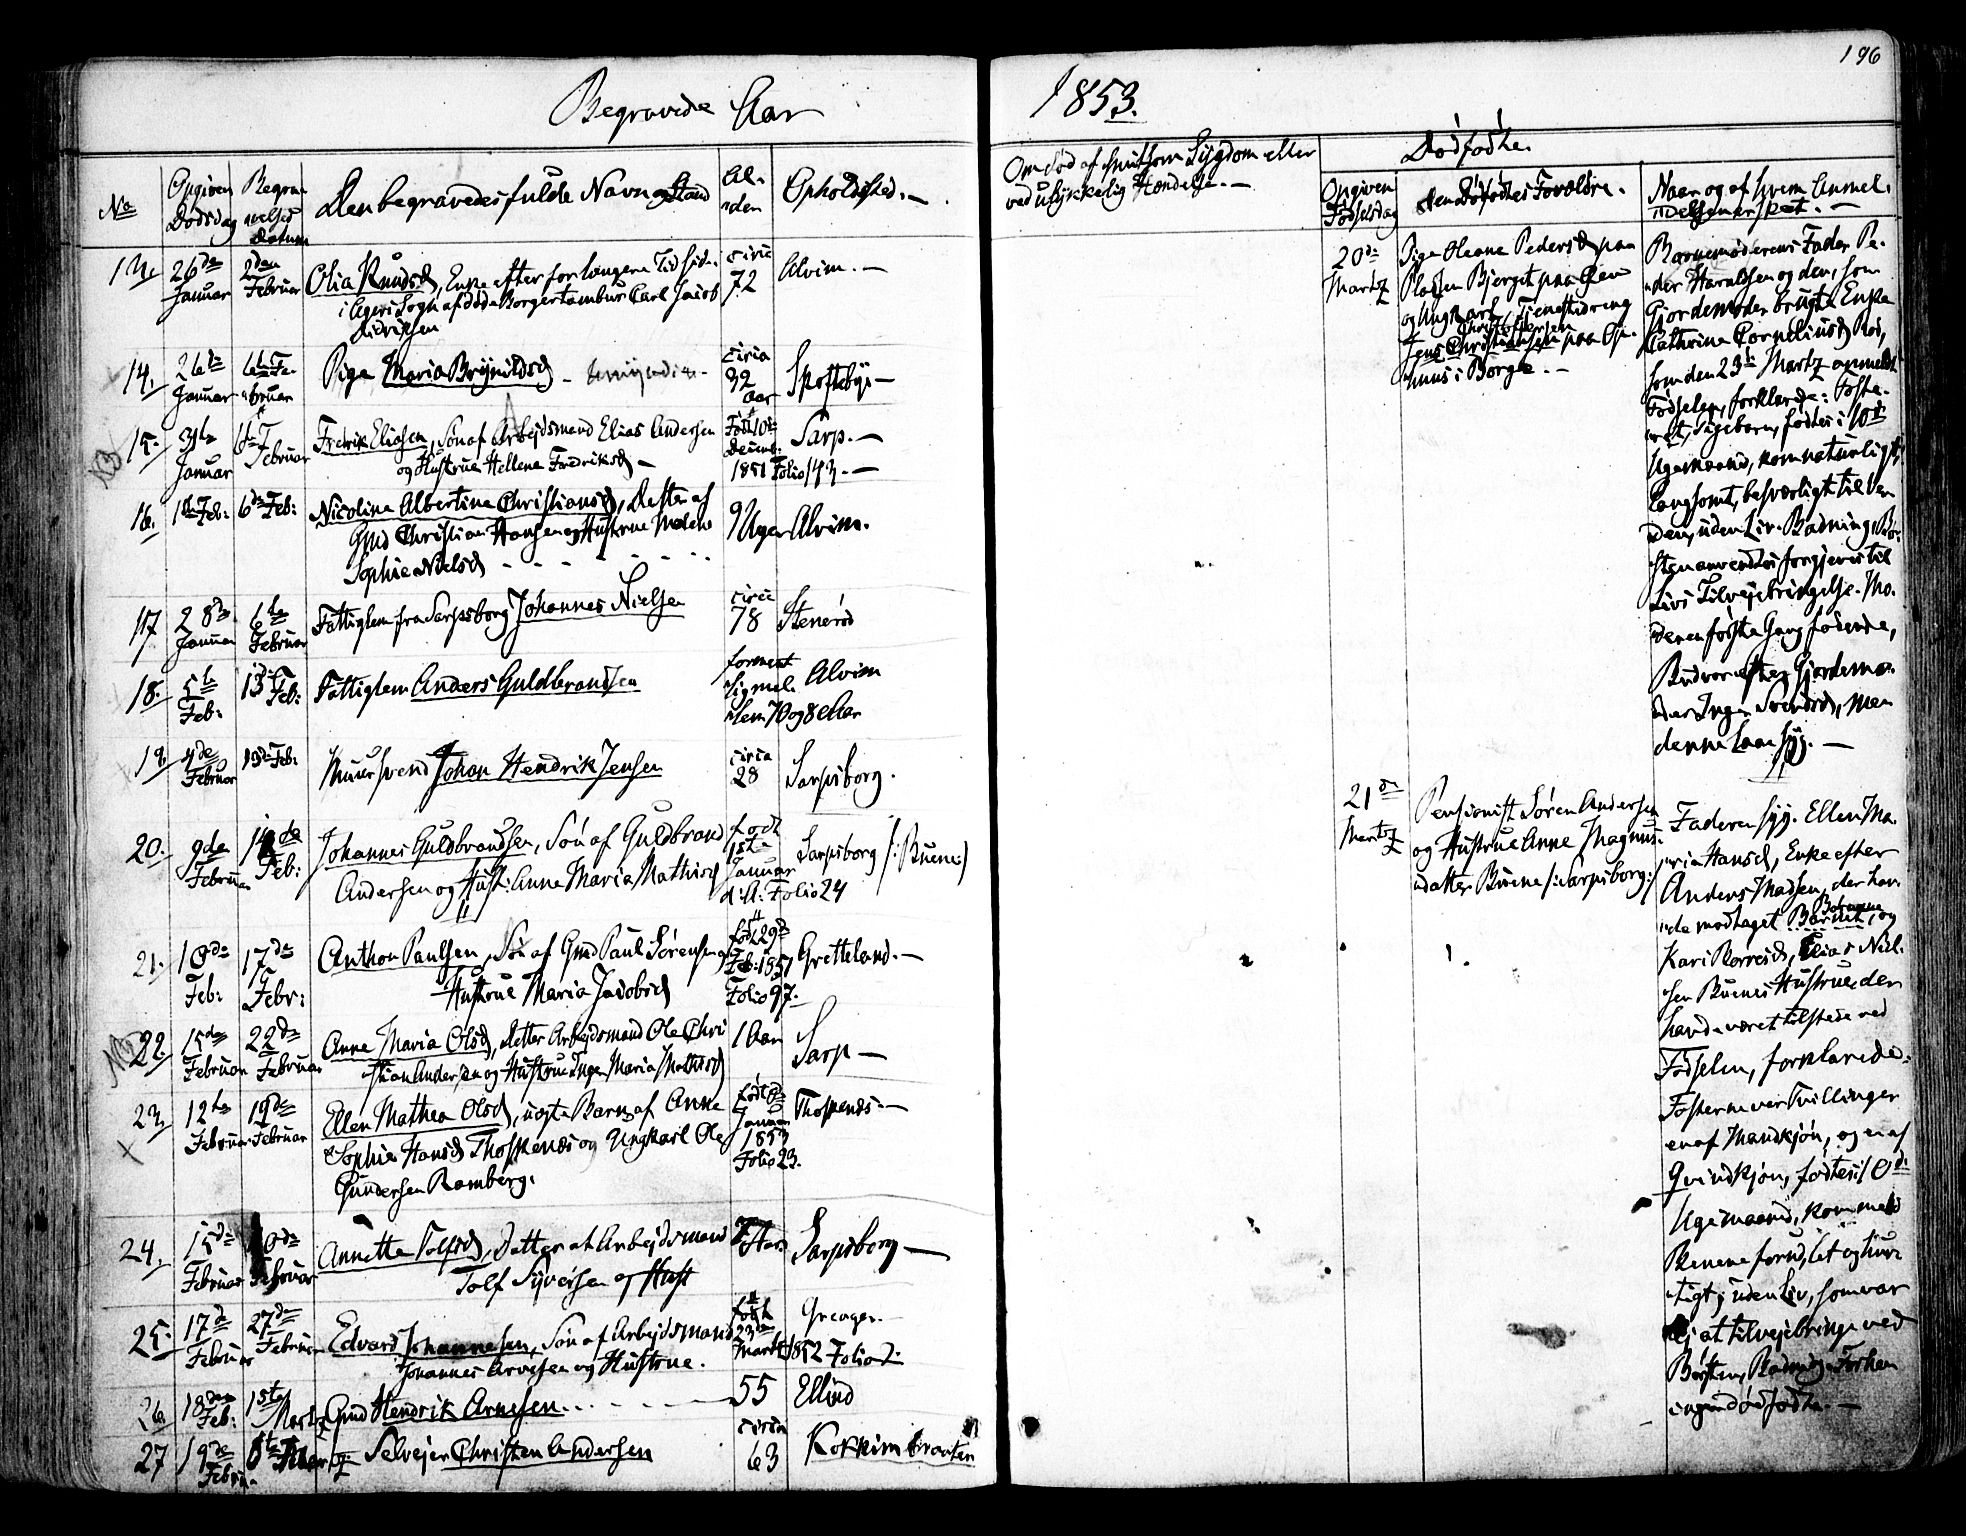 196
Begravede Aar 1853.
No
Opgiven Dødsdag
Begravelses Datum
Den begravedes fulde Navn og Stand
Alderen
Opholdsted.
Om Død af smitsom Sygdom eller
ved ulykkelig Hændelse.
Dødfødte
Opgiven Fødselsdag
den Dødfødtes Forældre.
Naar og af hvem Anmeldelsen er skeet.
13. 26de Januar 2den Februar
Olia Knudsd, Enke efter for længere Tid siden
i Agers Sogn afdøde Borgertambur Carl Jacob
Didriksen
circa 72
Alvim.
14. 26de Januar 6te Februar
Pige Maria Brynildsd
circa 32 aar
Spydeby
15. 31te Januar 6te Februar
Fredrik Eliasen, Søn af Arbejdsmand Elias Andersen
og Hustrue Hellene Fredriksd
Født 10de Decemb: 1851 Folio 143.
Sarp.
16. 1ste Feb: 6de Feb:
Nicoline Albertine Christiansd, Datter af
Gmd Christian Hansen og Hustrue Malene
Sophie Nielsd
9 Uger
Alvim.
17 28de Januar 6te Februar
Fattiglem fra Sarpsborg Johannes Nielsen
circa 78
Stenerød
18. 5te Feb: 13de Feb:
Fattiglem Anders Guldbrandsen
forment sig mellem 70 og 80 Aar
Alvim
19. 4de Februar 13de Feb:
Muursvend Johan Hendrik Jensen
circa 28
Sarpsborg.
20. 9de Februar Feb:
Johannes Guldbrandsen, Søn af Guldbrand
Andersen og Hust: Anne Maria Mathisd
født 1ste Januar d: A: Folio 24
Sarpsborg /:Buene:/
21. 10de Feb: 17de Febr:
Anthon Paulsen, Søn af Gmd Paul Sørensen og
Hustrue Maria Jacobsd
født 29de Feb: 1851 Folio 97.
Gretteland.
22. 15de Februar 22de Februar
Anne Maria Olsd, Datter Arbejdsmand Ole Christian
Andersen og Hustrue Inger Maria Mathisd
1 Aar
Sarp
23. 12te Februar 19de Februar
Ellen Mathea Olsd, uægte Barn af Anne
Sophie Hansd Thospenæs og Ungkarl Ole
Gundersen Romberg.
født Januar 1853 Folio 23.
Thospenæs.
24. 15de Februar Februar
Annette Tolfsd, Datter af Arbejdsmand
Tolf Syversen og Hust
Sarpsborg
25. 17de Februar 27de Februar
Edvard Johannesen, Søn af Arbejdsmand
Johannes Arvesen og Hustrue.
født 23de Martz 1852 Folio 2.
Greager.
26. 18den Feb: 1ste Martz
Gmd Hendrik Arnesen
55
Ellind
27 19de Februar 6te
Selvejer Christen Andersen
circa 63
Kokkimbraaten
20de Martz
Pige Oleane Pedersd paa
Pladsen Bjerget paa
og Ungkarl, Tjenestedreng
Christophersen
Jens Christiansen paa Op-
huus i Borge.
Barnemoderens Fader Pe-
der Haraldsen og den, som
Gjordemoder brugte Enke
Cathrine Corneliusd Roi,
som den 23de Martz anmeldte
Fødselen, forklarede: Foste-
ret, Pigebarn, fødtes i 10de
Ugemaaned, kom naturligt,
langsomt, besværligt til Ver-
den, uden Liv. Badning, Bør-
sten anvendtes forgjeves til
Livs Tilvejebringelse. Mo-
deren første Gang fødende,
Bud var efter Gjordemo-
der Inger Svendsd, men
denne laae syg.
21de Martz
Pensionist Søren Andersen
og Hustrue Anne Magnus-
datter Buene /:Sarpsborg:/
Faderen syg. Ellen Ma-
ria Hansd, Enke efter
Anders Madsen, der hav-
de modtaget Barnet, og
Børnene
Kari Børresd, Elias Niel-
sen Buenes Hustrue, der
havde været tilstede ved
Fødselen, forklarede:
Fosterne var Tvillinger
en af Mandkjøn, og en af
Qvindkjøn, fødtes i 10de
Ugemaaned, kom med
Benene forud, let og hur-
tigt, uden Liv, som var
ej at tilvejebringe ved
Børsten, Badning. Forhen
ingen dødfødte.